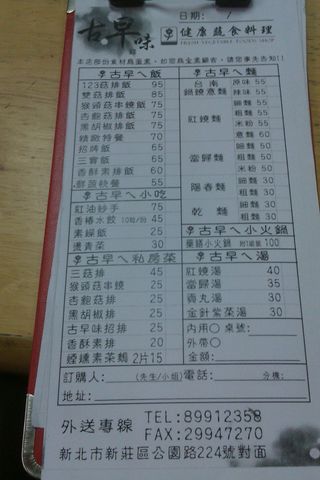 古早味
日期: /
健康蔬食料理
FRESH VEGETABLE FOODS SHOP
本店部份食材為蛋素，如您為全素顧客，請您事先告知!!
古早ㄟ飯
123菇排飯 95
雙菇排飯 85
猴頭菇串燒飯 75
杏鮑菇排飯 75
黑胡椒排飯 75
精緻特餐 70
招牌飯 65
三寶飯 65
香酥素排飯 60
鮮蔬秧餐 55
古早ㄟ小吃
紅油炒手 75
香椿水餃(10粒/份) 45
素綜飯 25
燙青菜 30
古早ㄟ私房菜
三菇排 45
猴頭菇串燒 25
杏鮑菇排 25
黑胡椒排 25
古早味招排 25
香酥素排 20
煙燻素茶鵝 2片15
古早ㄟ麵
台南鍋燒意麵
原味 55
辣味 55
紅燒麵
細麵 55
粗麵 55
米粉 55
意麵 60
當歸麵
細麵 50
粗麵 50
米粉 50
陽春麵
細麵 30
粗麵 30
乾麵
細麵 30
粗麵 30
古早ㄟ小火鍋
藥膳小火鍋 附1碗飯 100
古早ㄟ湯
紅燒湯 40
當歸湯 35
貢丸湯 30
金針紫菜湯 30
內用○ 桌號:
外帶○
金額:
訂購人: (先生/小姐) 電話: 分機:
地址:
外送專線 TEL:89912358
FAX:29947270
新北市新莊區公園路224號對面